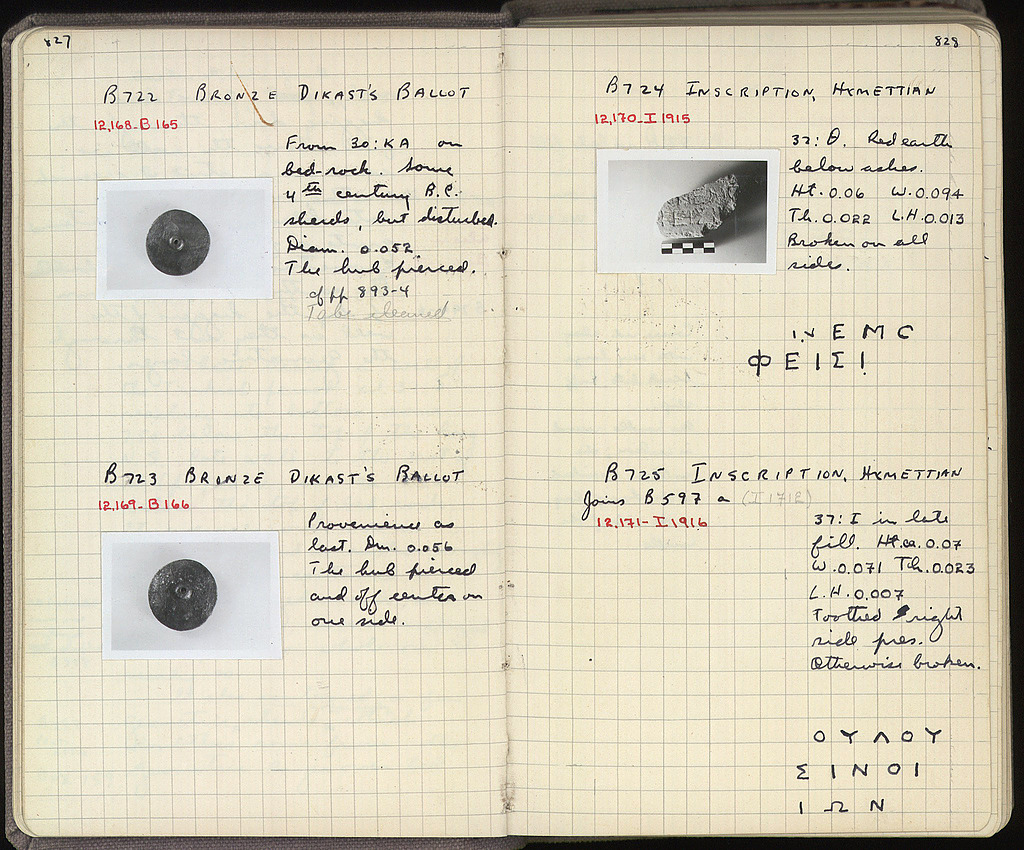 827
B722 BRONZE DIKAST'S BALLOT
12,168-B 165
From 30:KA on
bed-rock. Some
4th century B.C.
sherds, but disturbed.
Diam. 0.052
The hub pierced.
cf pp 893-4
To be cleaned
B723 BRONZE DIKAST'S BALLOT
12,169-B 166
Provenience as
last. Dm. 0.056
The hub pierced
and off center on
one side.
828
B724 INSCRIPTION, HYMETTIAN
12,170-I 1915
32:Θ. Red earth
below ashes.
Ht. 0.06 W. 0.094
Th. 0.022 L.H. 0.013
Broken on all
sides.
Ε Μ C
Φ Ε Ι Σ Ι
B725 INSCRIPTION, HYMETTIAN
Joins B 597 a (I 1712)
12,171-I 1916
37:I in late
fill. Ht. ca. 0.07
W. 0.071 Th. 0.023
L.H. 0.007
Toothed right
side pres.
Otherwise broken.
Ο Υ Λ Ο Υ
Σ Ι Ν Ο Ι
Ι Ω Ν